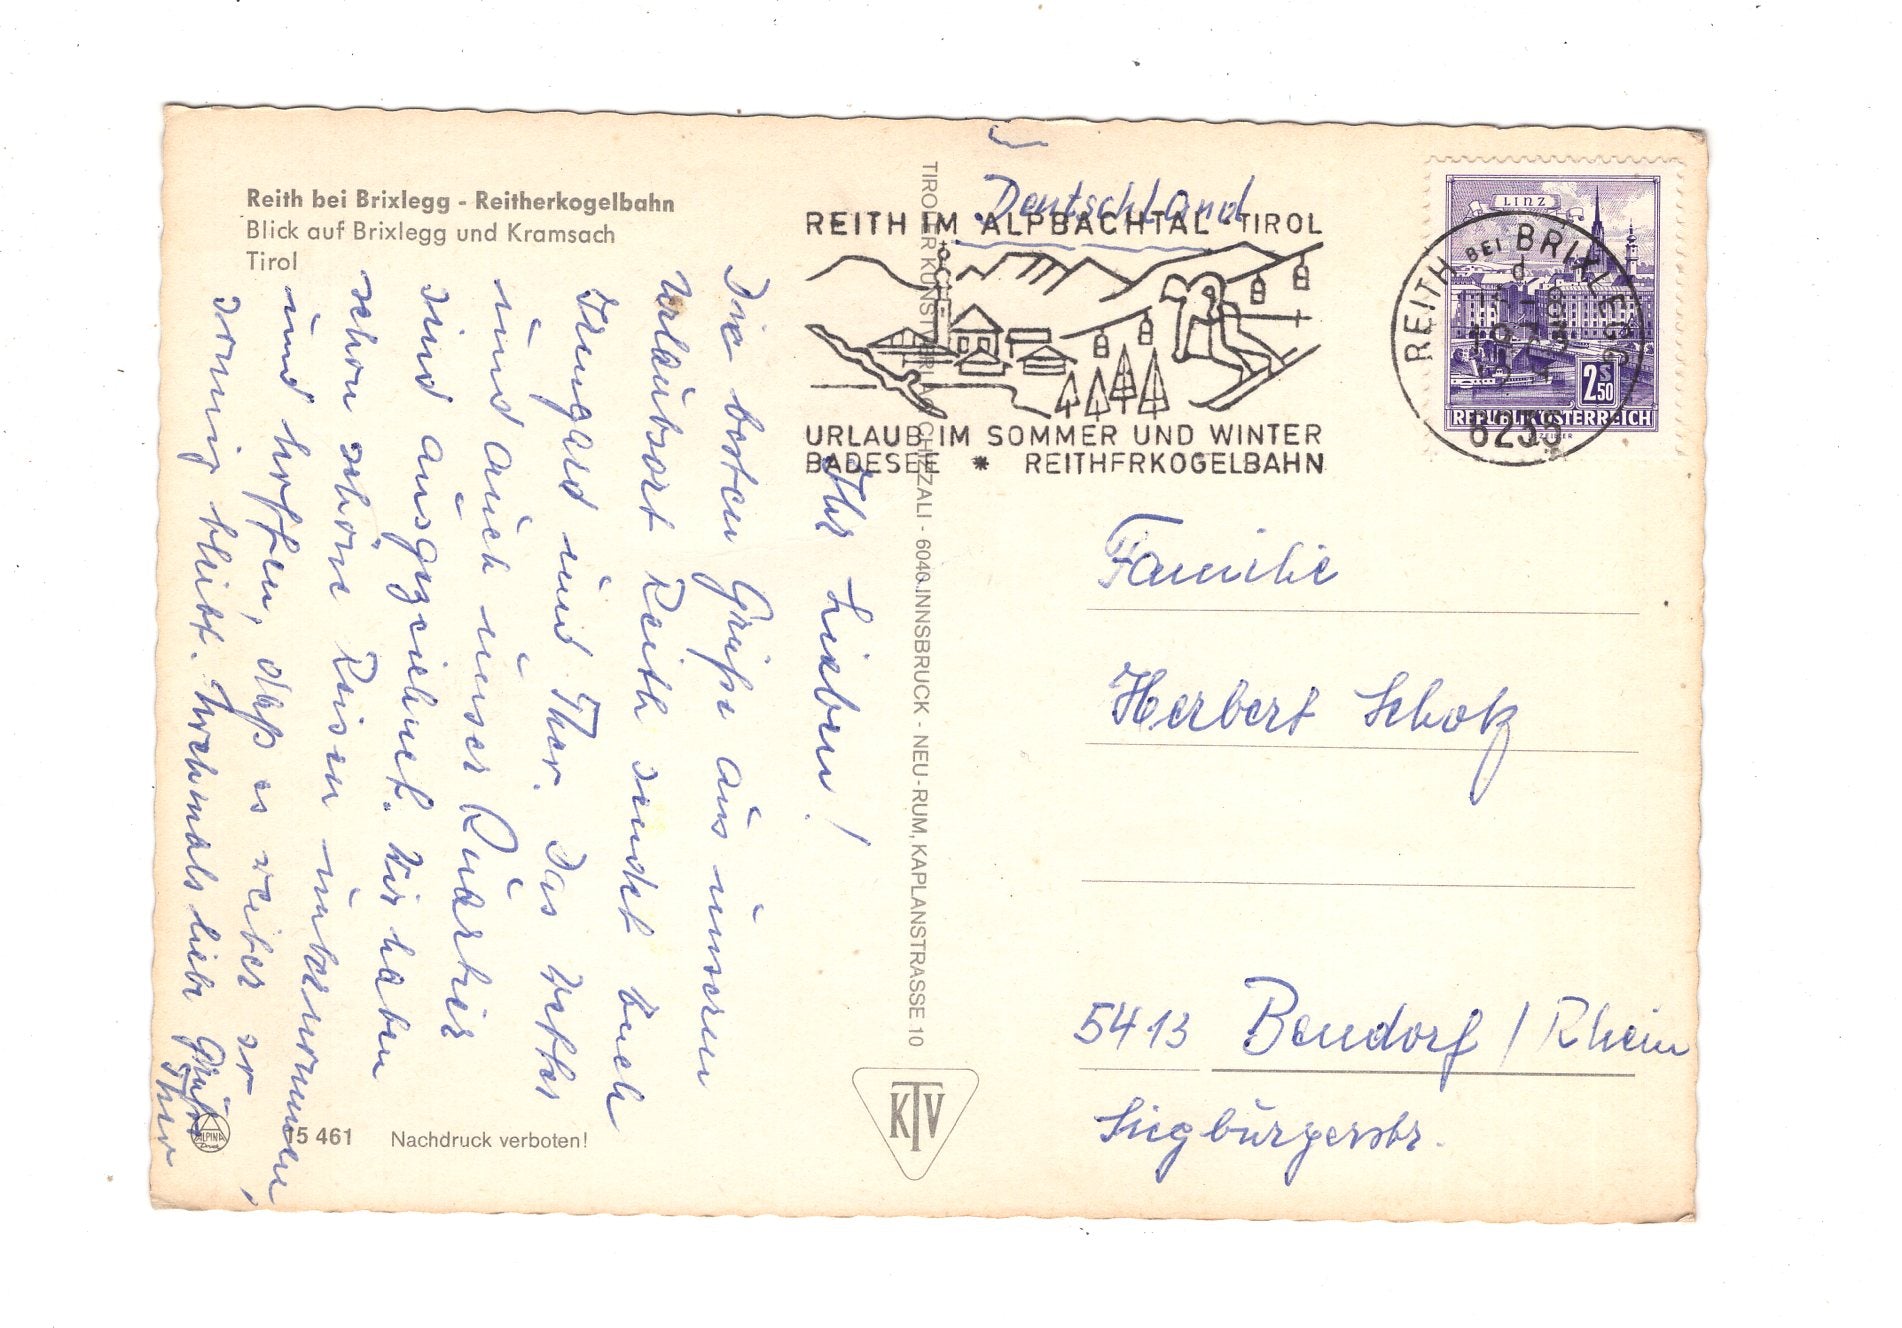 Reith bei Brixlegg - Reitherkogelbahn
Blick auf Brixlegg und Kramsach
Tirol
Ihr Lieben!
Die besten Grüße aus unseren
Urlaubsort Reith sendet Euch
Irmgard und Ther. Das Wetter
und auch unser Quartier
sind ausgezeichnet. Wir haben
schon schöne Reisen unternommen,
und hoffen, daß es weiter so
sonnig bleibt. Nochmals liebe Grüße
Ther
15 461
Nachdruck verboten!
ALPINA
TIROLER KUNSTVERLAG CHIZZALI - 6040 INNSBRUCK - NEU-RUM, KAPLANSTRASSE 10
KTV
Deutschland
REITH IM ALPBACHTAL - TIROL
URLAUB IM SOMMER UND WINTER
BADESEE * REITHERKOGELBAHN
LINZ
2 S 50
REPUBLIK ÖSTERREICH
REITH BEI BRIXLEGG
d
6235
Familie
Herbert Scholz
5413 Bendorf / Rhein
Siegburgerstr.